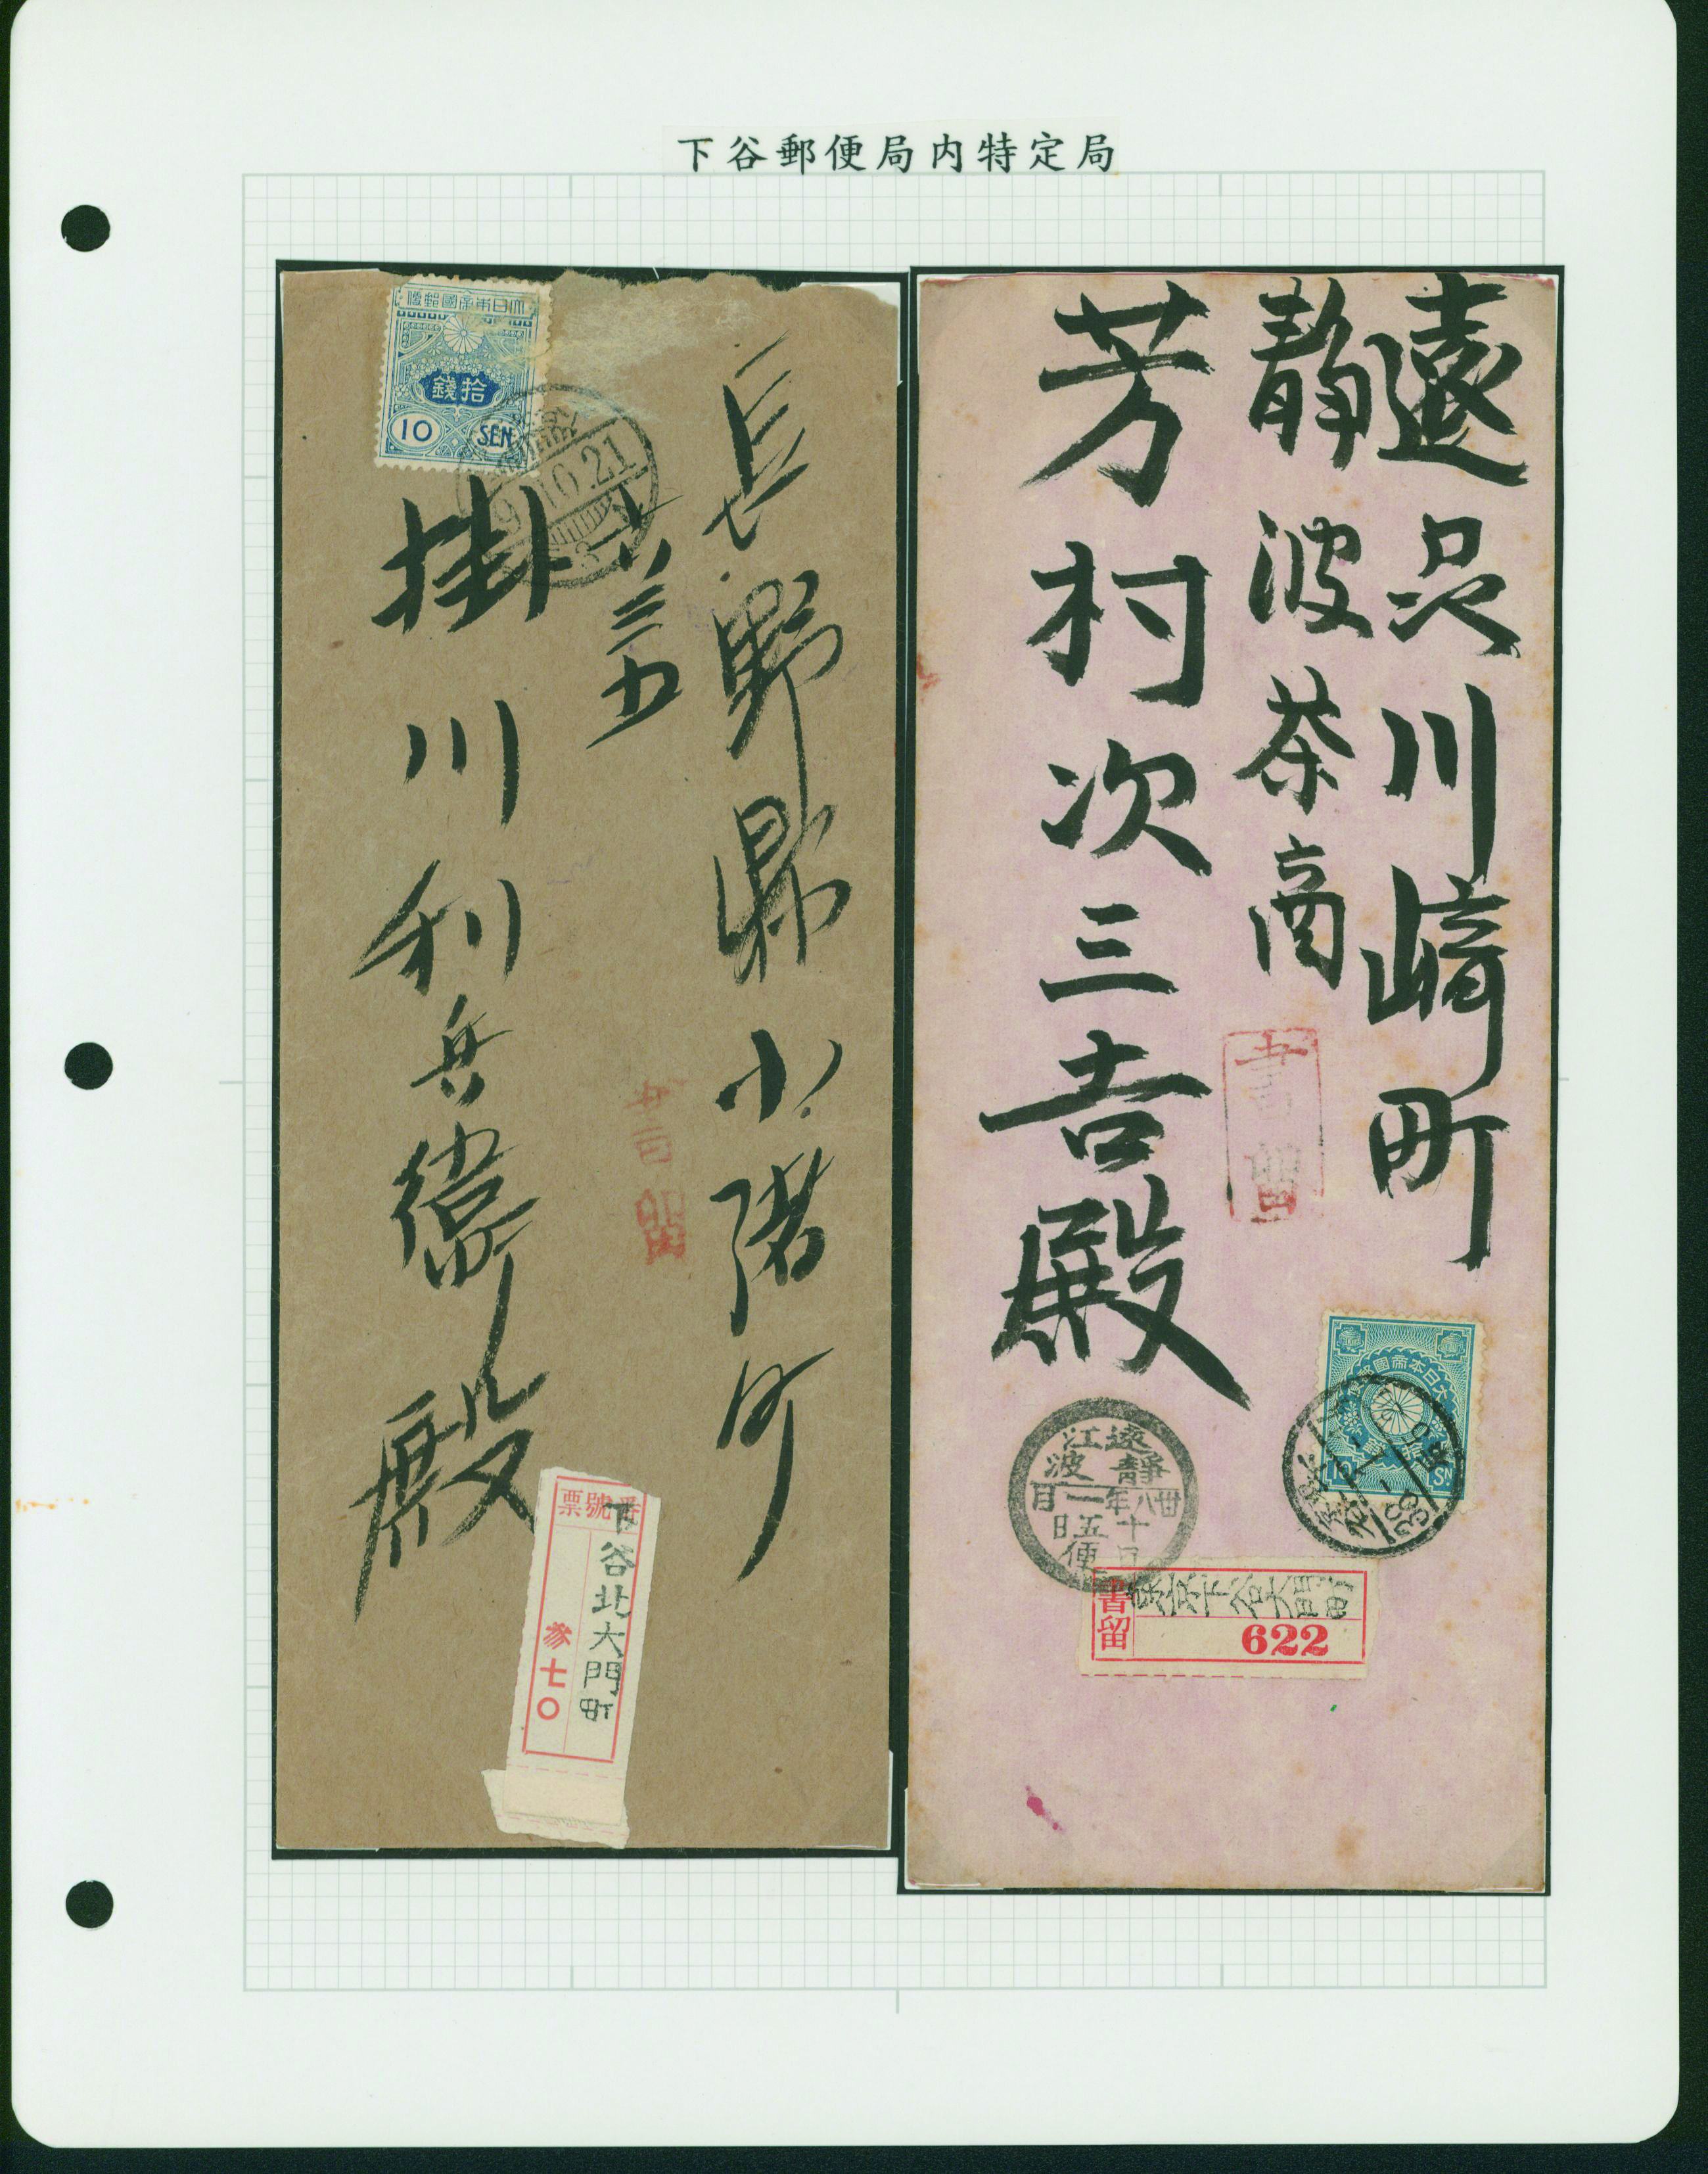 下谷郵便局内特定局
大日本帝國郵便
拾錢
10 SEN
9.10.21
長野縣小諸町
掛川利兵衛殿
書留
番號票
下谷北大門町
参七〇
遠忍川崎町
静波茶商
芳村次三吉殿
書留
大日本帝國郵便
10 SN
遠江
靜波
卅八年一月
十五日
口便
書留
東京下谷大門町
622